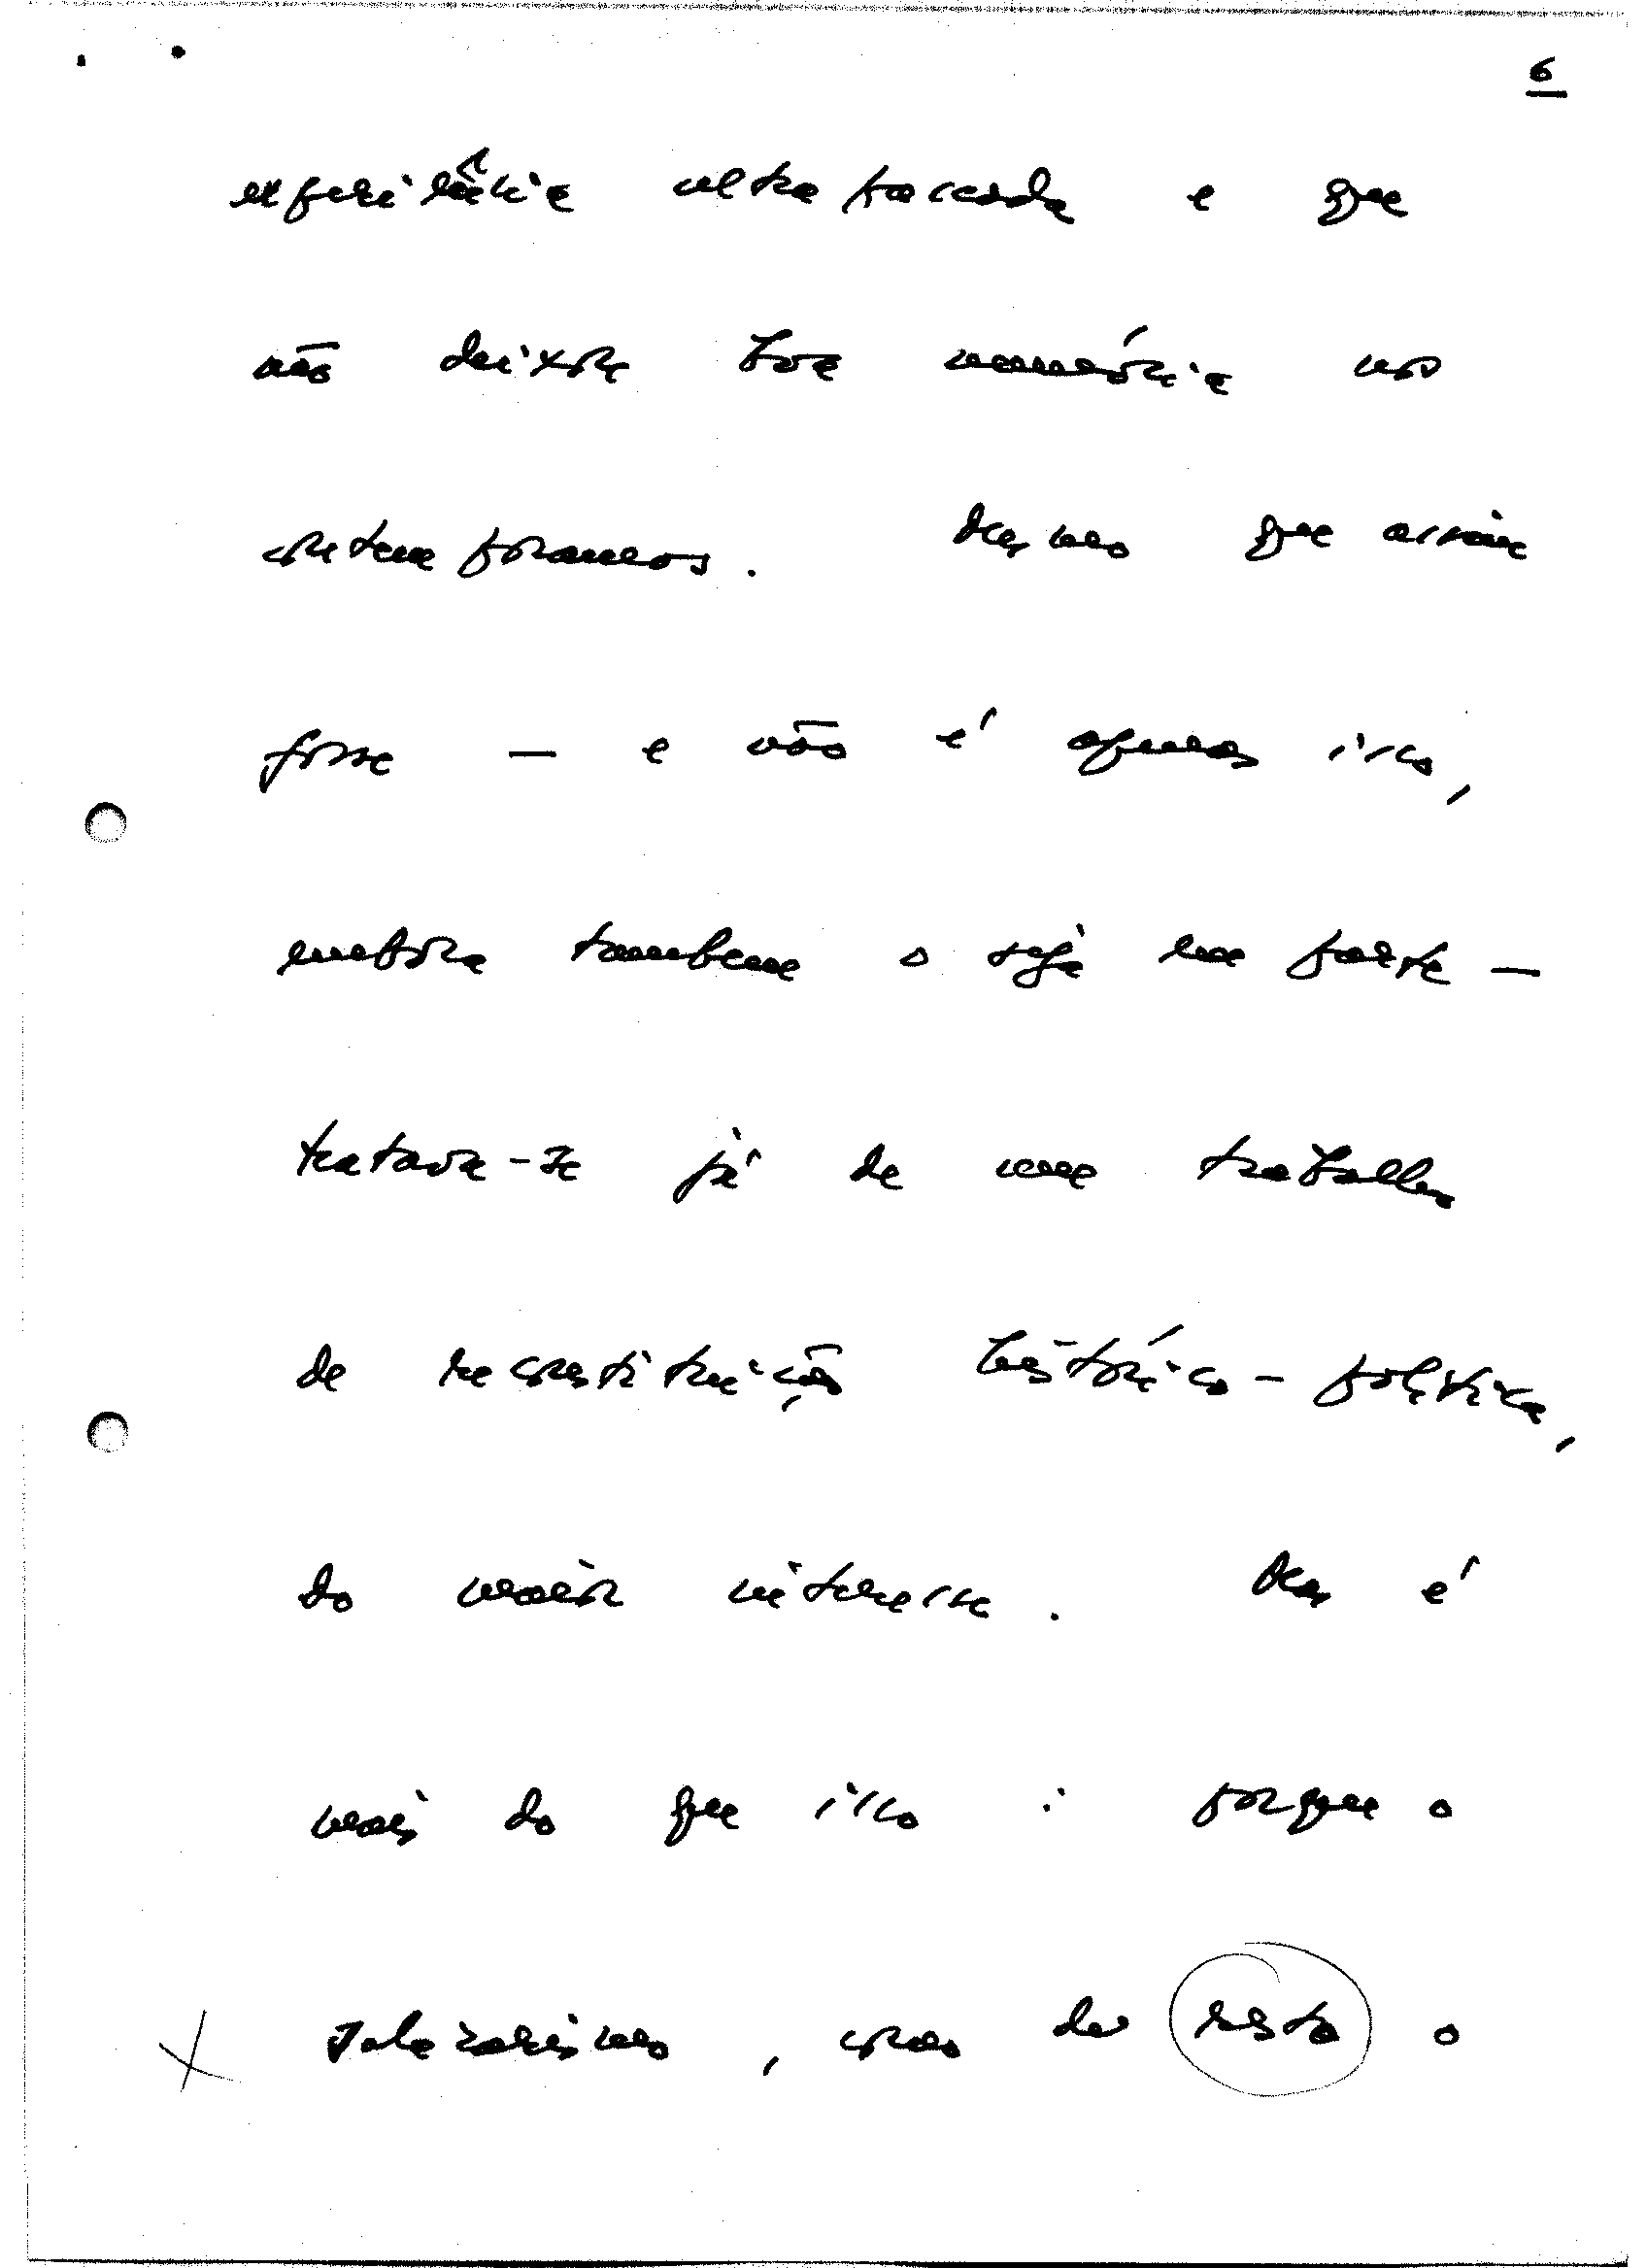 6
experiência ultrapassada e que
não deixou boa memória nos
contemporâneos. Mesmo que assim
fosse — e não é apenas isso,
embora também o seja em parte —
tratava-se já de um trabalho
de reconstituição histórico-política,
do maior interesse. Mas é
mais do que isso: porque o
salazarismo, como de resto o